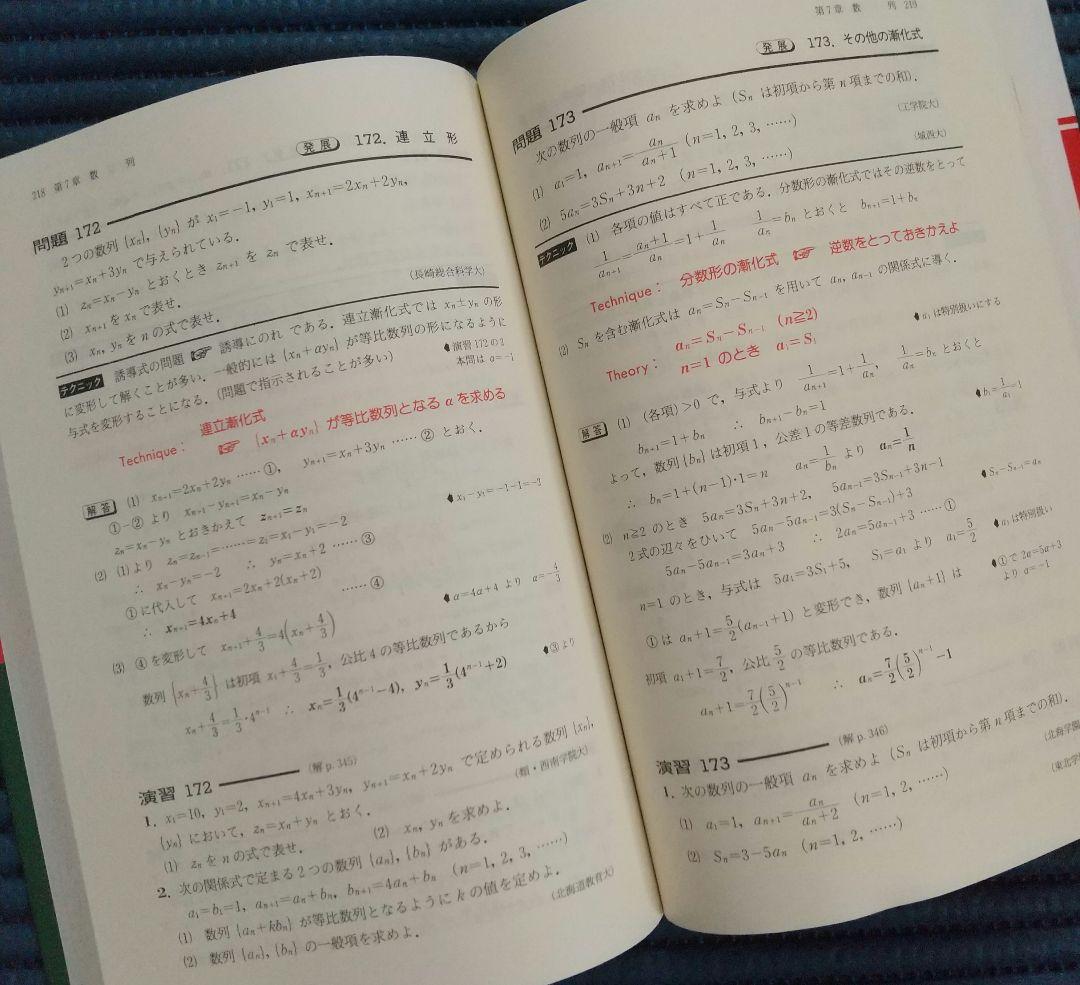 218 第7章 数 列
発展 172. 連 立 形
問題 172
2つの数列 {xn}, {yn} が x1=−1, y1=1, xn+1=2xn+2yn,
yn+1=xn+3yn で与えられている．
(1) zn=xn−yn とおくとき zn+1 を zn で表せ．
(2) xn+1 を xn で表せ．
(3) xn, yn を n の式で表せ．
(長崎総合科学大)
テクニック 誘導式の問題 ☞ 誘導にのれ である．連立漸化式では xn±yn の形
に変形して解くことが多い．一般的には {xn+αyn} が等比数列の形になるように
与式を変形することになる．(問題で指示されることが多い)
演習172の2
本問は α=−1
Technique： 連立漸化式
☞ {xn+αyn} が等比数列となる α を求める
解答 (1) xn+1=2xn+2yn ……①, yn+1=xn+3yn ……② とおく．
①−② より xn+1−yn+1=xn−yn
zn=xn−yn とおきかえて zn+1=zn
x1−y1=−1−1=−2
(2) (1)より zn=zn−1=……=z1=x1−y1=−2
∴ xn−yn=−2 ∴ yn=xn+2 ……③
①に代入して xn+1=2xn+2(xn+2)
∴ xn+1=4xn+4 ……④
α=4α+4 より α=−4/3
(3) ④を変形して xn+1+4/3=4(xn+4/3)
数列 {xn+4/3} は初項 x1+4/3=1/3, 公比4の等比数列であるから
xn+4/3=1/3・4^(n−1) ∴ xn=1/3(4^(n−1)−4), yn=1/3(4^(n−1)+2)
③より
演習 172 (解 p.345)
1. x1=10, y1=2, xn+1=4xn+3yn, yn+1=xn+2yn で定められる数列 {xn},
{yn} において, zn=xn+yn とおく．
(類・西南学院大)
(1) zn を n の式で表せ． (2) xn, yn を求めよ．
2. 次の関係式で定まる2つの数列 {an}, {bn} がある．
a1=b1=1, an+1=an+bn, bn+1=4an+bn (n=1, 2, 3, ……)
(1) 数列 {an+kbn} が等比数列となるように k の値を定めよ．
(2) 数列 {an}, {bn} の一般項を求めよ．
(北海道教育大)
第7章 数 列 219
発展 173. その他の漸化式
問題 173
次の数列の一般項 an を求めよ (Sn は初項から第 n 項までの和)．
(1) a1=1, an+1=an/(an+1) (n=1, 2, 3, ……)
(工学院大)
(2) 5an=3Sn+3n+2 (n=1, 2, 3, ……)
(城西大)
テクニック (1) 各項の値はすべて正である．分数形の漸化式ではその逆数をとって
1/an+1=(an+1)/an=1+1/an 1/an=bn とおくと bn+1=1+bn
Technique： 分数形の漸化式 ☞ 逆数をとっておきかえよ
(2) Sn を含む漸化式は an=Sn−Sn−1 を用いて an, an−1 の関係式に導く．
Theory： an=Sn−Sn−1 (n≧2)
n=1 のとき a1=S1
a1は特別扱いにする
解答 (1) (各項)>0 で, 与式より 1/an+1=1+1/an, 1/an=bn とおくと
bn+1=1+bn ∴ bn+1−bn=1
b1=1/a1=1
よって, 数列 {bn} は初項1, 公差1の等差数列である．
∴ bn=1+(n−1)・1=n an=1/bn より an=1/n
(2) n≧2 のとき 5an=3Sn+3n+2, 5an−1=3Sn−1+3n−1
Sn−Sn−1=an
2式の辺々をひいて 5an−5an−1=3(Sn−Sn−1)+3
5an−5an−1=3an+3 ∴ 2an=5an−1+3 ……①
a1は特別扱い
n=1 のとき, 与式は 5a1=3S1+5, S1=a1 より a1=5/2
①で 2α=5α+3
より α=−1
①は an+1=5/2(an−1+1) と変形でき, 数列 {an+1} は
初項 a1+1=7/2, 公比 5/2 の等比数列である．
an+1=7/2(5/2)^(n−1) ∴ an=7/2(5/2)^(n−1)−1
演習 173 (解 p.346)
1. 次の数列の一般項 an を求めよ (Sn は初項から第 n 項までの和)．
(1) a1=1, an+1=an/(an+2) (n=1, 2, ……)
(北海学園
(2) Sn=3−5an (n=1, 2, ……)
(東北学